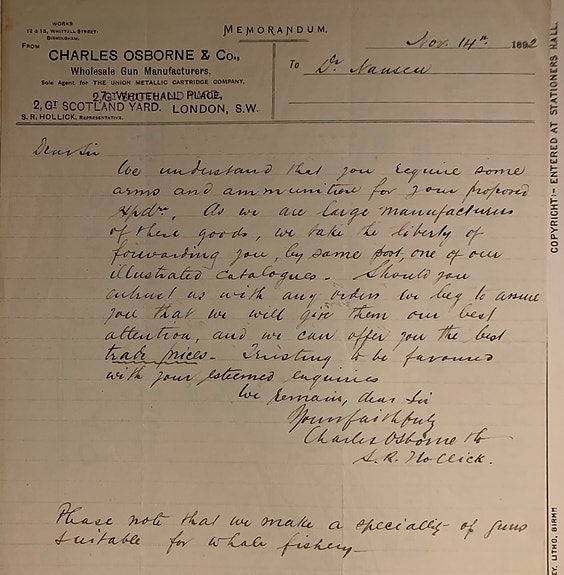 WORKS
12 & 13, WHITTALL STREET;
BIRMINGHAM.
MEMORANDUM.
Nov. 14th 1892
FROM
CHARLES OSBORNE & Co.,
Wholesale Gun Manufacturers,
Sole Agent for THE UNION METALLIC CARTRIDGE COMPANY.
7, WHITEHALL PLACE,
2, GT SCOTLAND YARD. LONDON, S.W.
S. R. HOLLICK, REPRESENTATIVE.
To Dr Nansen
Dear Sir
We understand that you require some
arms and ammunition for your proposed
Expdn. As we are large manufacturers
of these goods, we take the liberty of
forwarding you, by same post, one of our
illustrated catalogues. Should you
entrust us with any orders we beg to assure
you that we will give them our best
attention, and we can offer you the best
trade prices. Trusting to be favoured
with your esteemed enquiries
We Remain, dear Sir
Yours faithfully
Charles Osborne & Co
S. R. Hollick.
Please note that we make a speciality of guns
suitable for whale fishery
COPYRIGHT:- ENTERED AT STATIONERS HALL.
LITHO, BIRMM